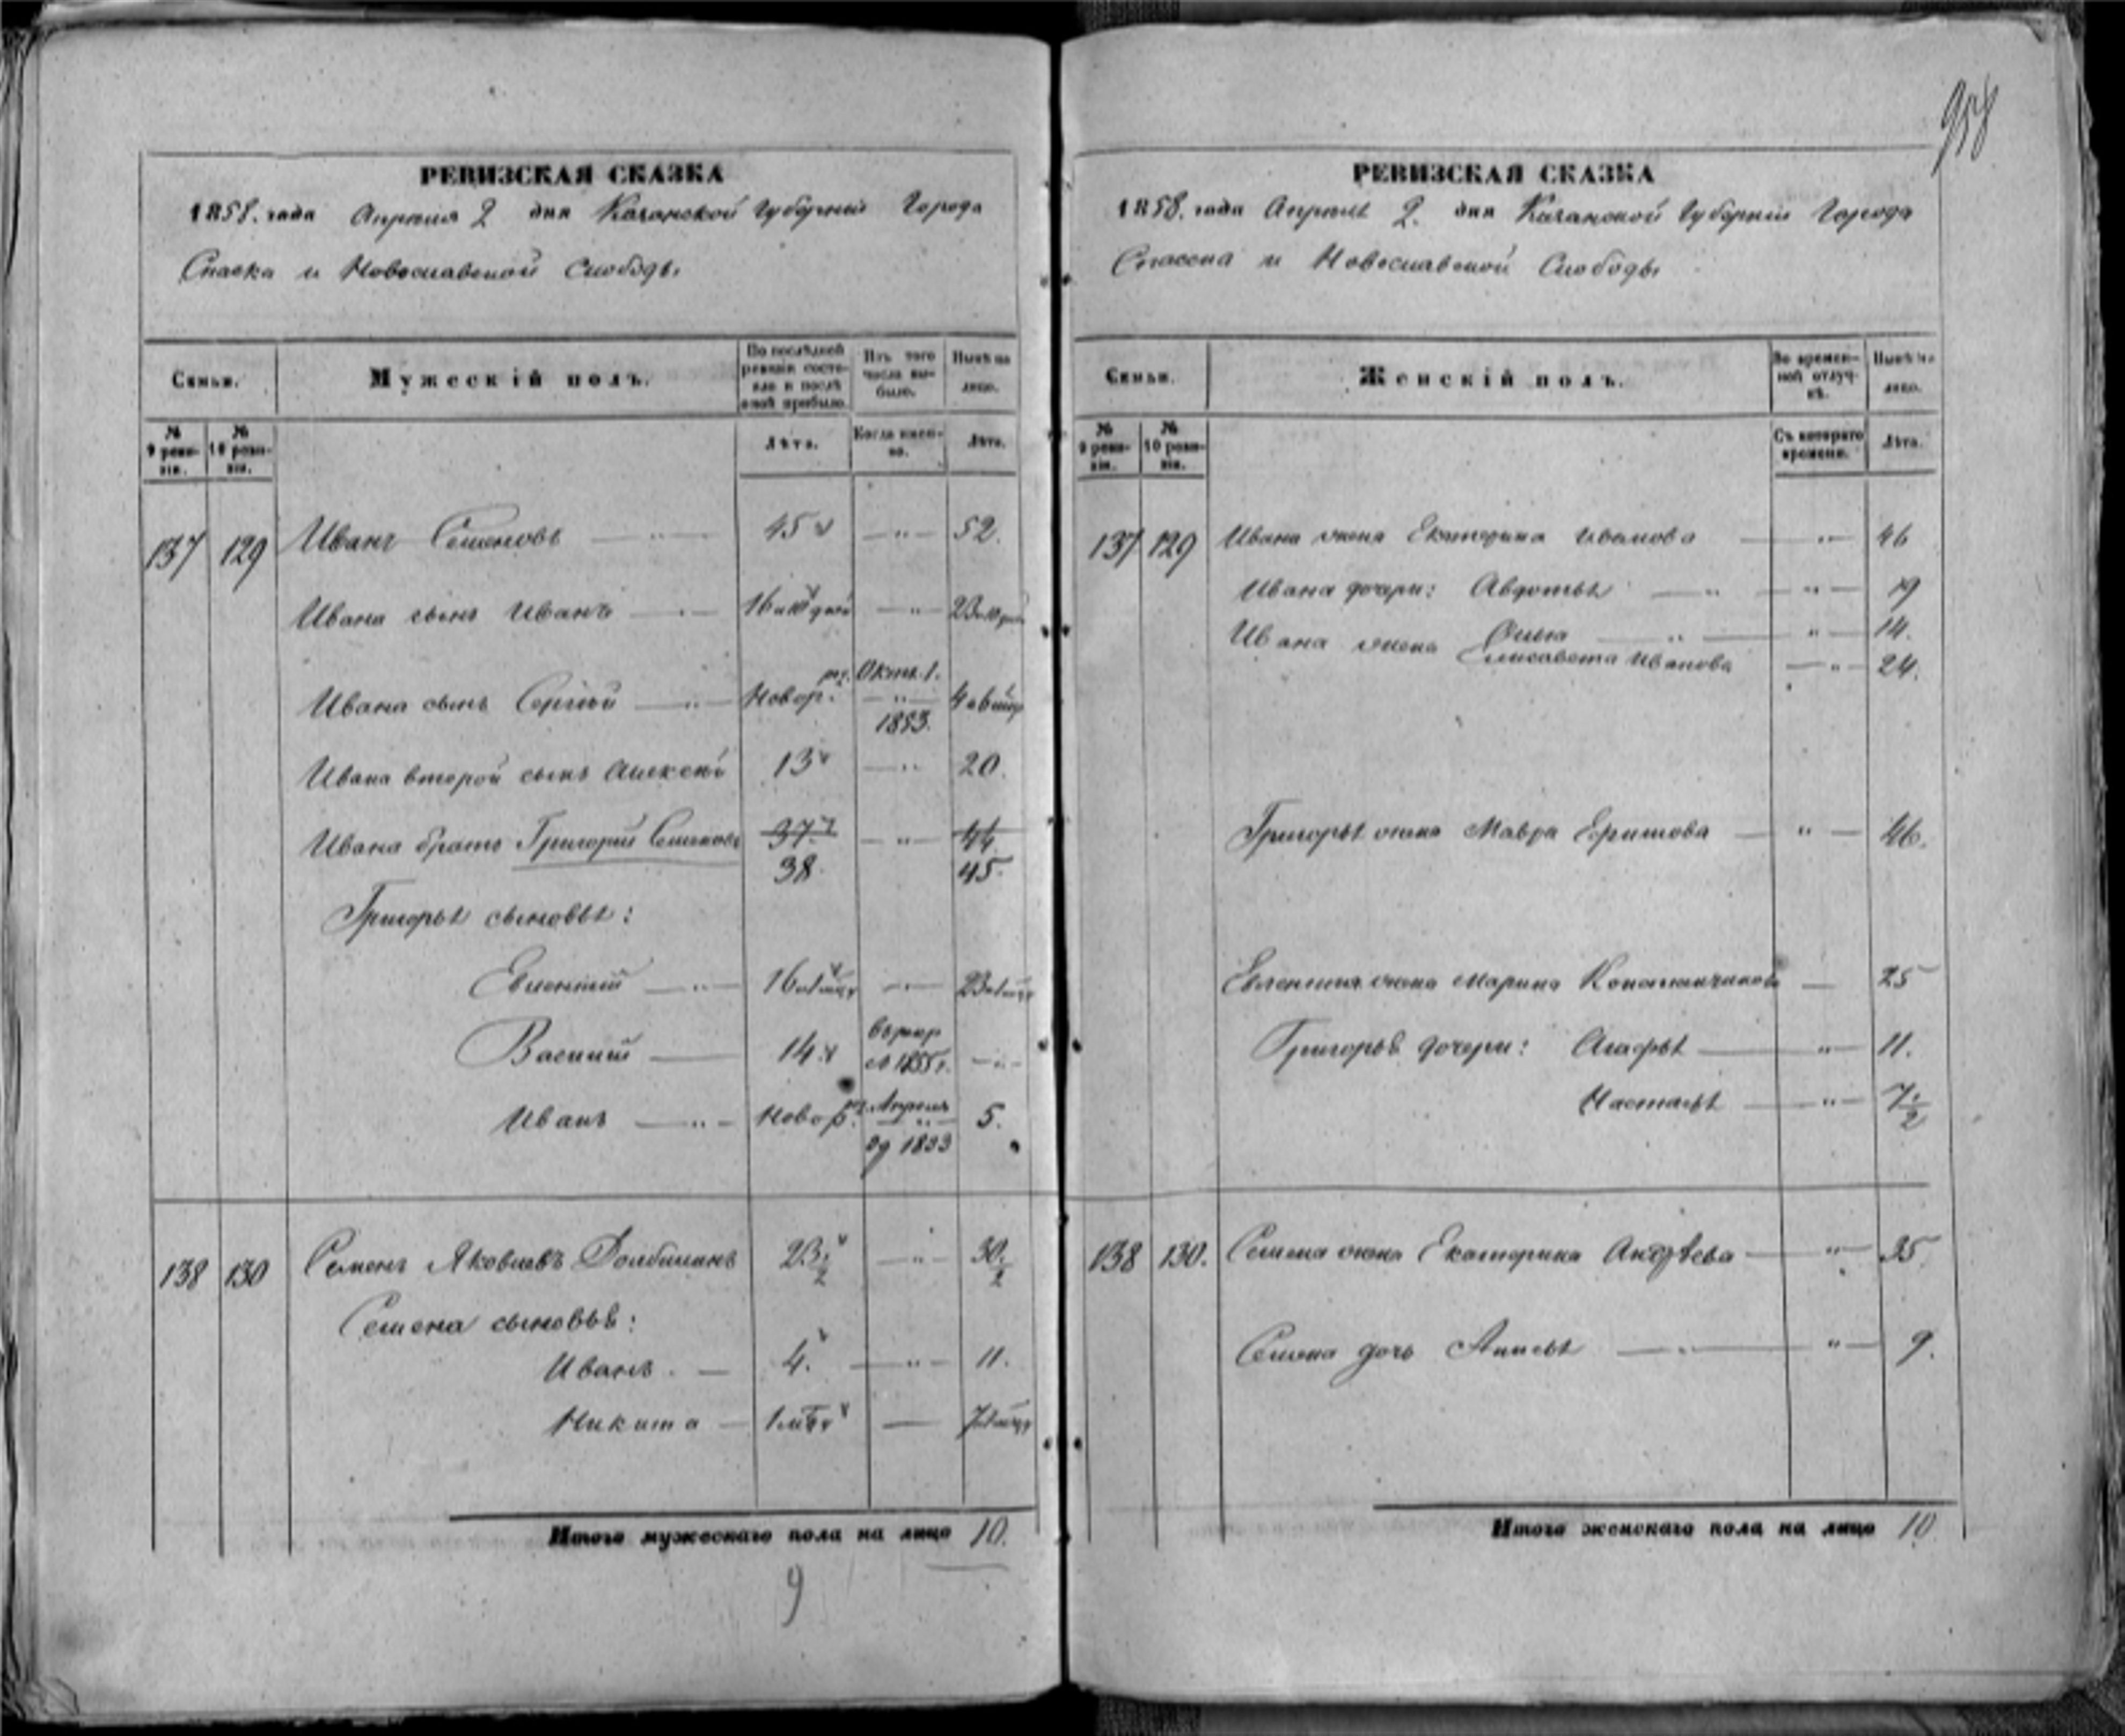 958
РЕВИЗСКАЯ СКАЗКА
1858. года Апреля 2 дня Казанской Губернии Города
Спаска и Новославской Слободы
Семьи.
Мужескій полъ.
По послѣдней ревизіи состояло и послѣ оной прибыло.
Изъ того числа выбыло.
Нынѣ на лицо.
№ 9 ревизіи.
№ 10 ревизіи.
Лѣта.
Когда именно.
Лѣта.
137 129 Иванъ Семеновъ 45 52.
Ивана сынъ Иванъ
Ивана сынъ Сергѣй Новор. Окт. 1. 1853.
Ивана второй сынъ Алексѣй 13 20.
Ивана братъ Григорій Семеновъ 37 44
38 45
Григорья сыновья:
Евлентій
Василій 14 1855 г.
Иванъ Новор. Апреля 1853 5.
138 130 Семенъ Яковлевъ 23 1/2 30 1/2
Семена сыновья:
Иванъ 4. 11.
Никита
Итого мужескаго пола на лицо 10.
9
РЕВИЗСКАЯ СКАЗКА
1858. года Апреля 2. дня Казанской Губерніи Города
Спасска и Новославской Слободы
Семьи.
Женскій полъ.
Во временной отлучкѣ.
Нынѣ на лицо.
№ 9 ревизіи.
№ 10 ревизіи.
Съ котораго времени.
Лѣта.
137 129 Ивана жена Екатерина Иванова 46
Ивана дочери: Авдотья 19
Ольга 14.
Ивана жена Елисавета Иванова 24.
Григорья жена Мавра Ефимова 46.
Евлентія жена Марина 25
Григорья дочери: Агафья 11.
Настасья 7 1/2
138 130. Семена жена Екатерина Андрѣева 35
Семена дочь Анисья 9.
Итого женскаго пола на лицо 10